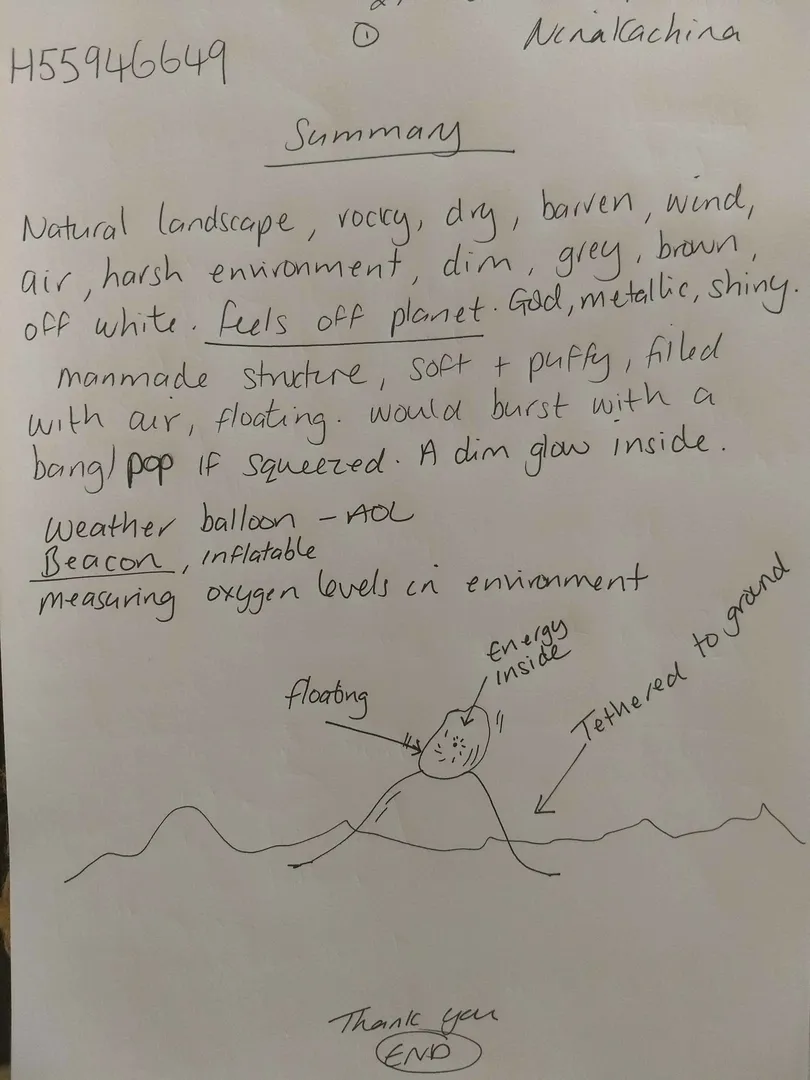 ①
NinaKachina
H55946649
Summary
Natural landscape, rocky, dry, barren, wind,
air, harsh environment, dim, grey, brown,
off white. feels off planet. Gold, metallic, shiny.
manmade structure, soft + puffy, filled
with air, floating. would burst with a
bang/pop if squeezed. A dim glow inside.
Weather balloon - AOL
Beacon, inflatable
measuring oxygen levels in environment
Energy
inside
floating
Tethered to ground
Thank you
END